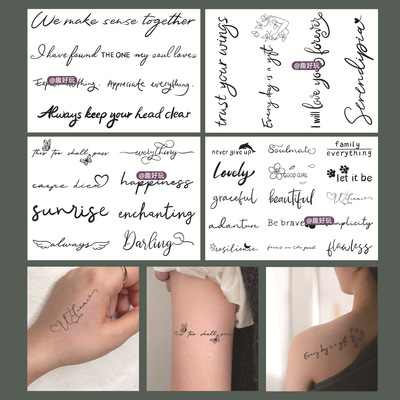 We make sense together
I have found THE ONE my soul loves
@趣好玩
Appreciate everything.
Always keep your head clear
trust your wings
Every day is a gift
@趣好玩
I will love you forever
Serendipia
this too shall pass
everything
@趣好玩
carpe diem
happiness
sunrise
enchanting
always
Darling
never give up
Soulmate
family
everything
Lovely
GOOD GIRL
let it be
graceful
beautiful
adventure
Be brave
@趣好玩
simplicity
resilience
focus on the good
flawless
this too shall pass
Every day is a gift